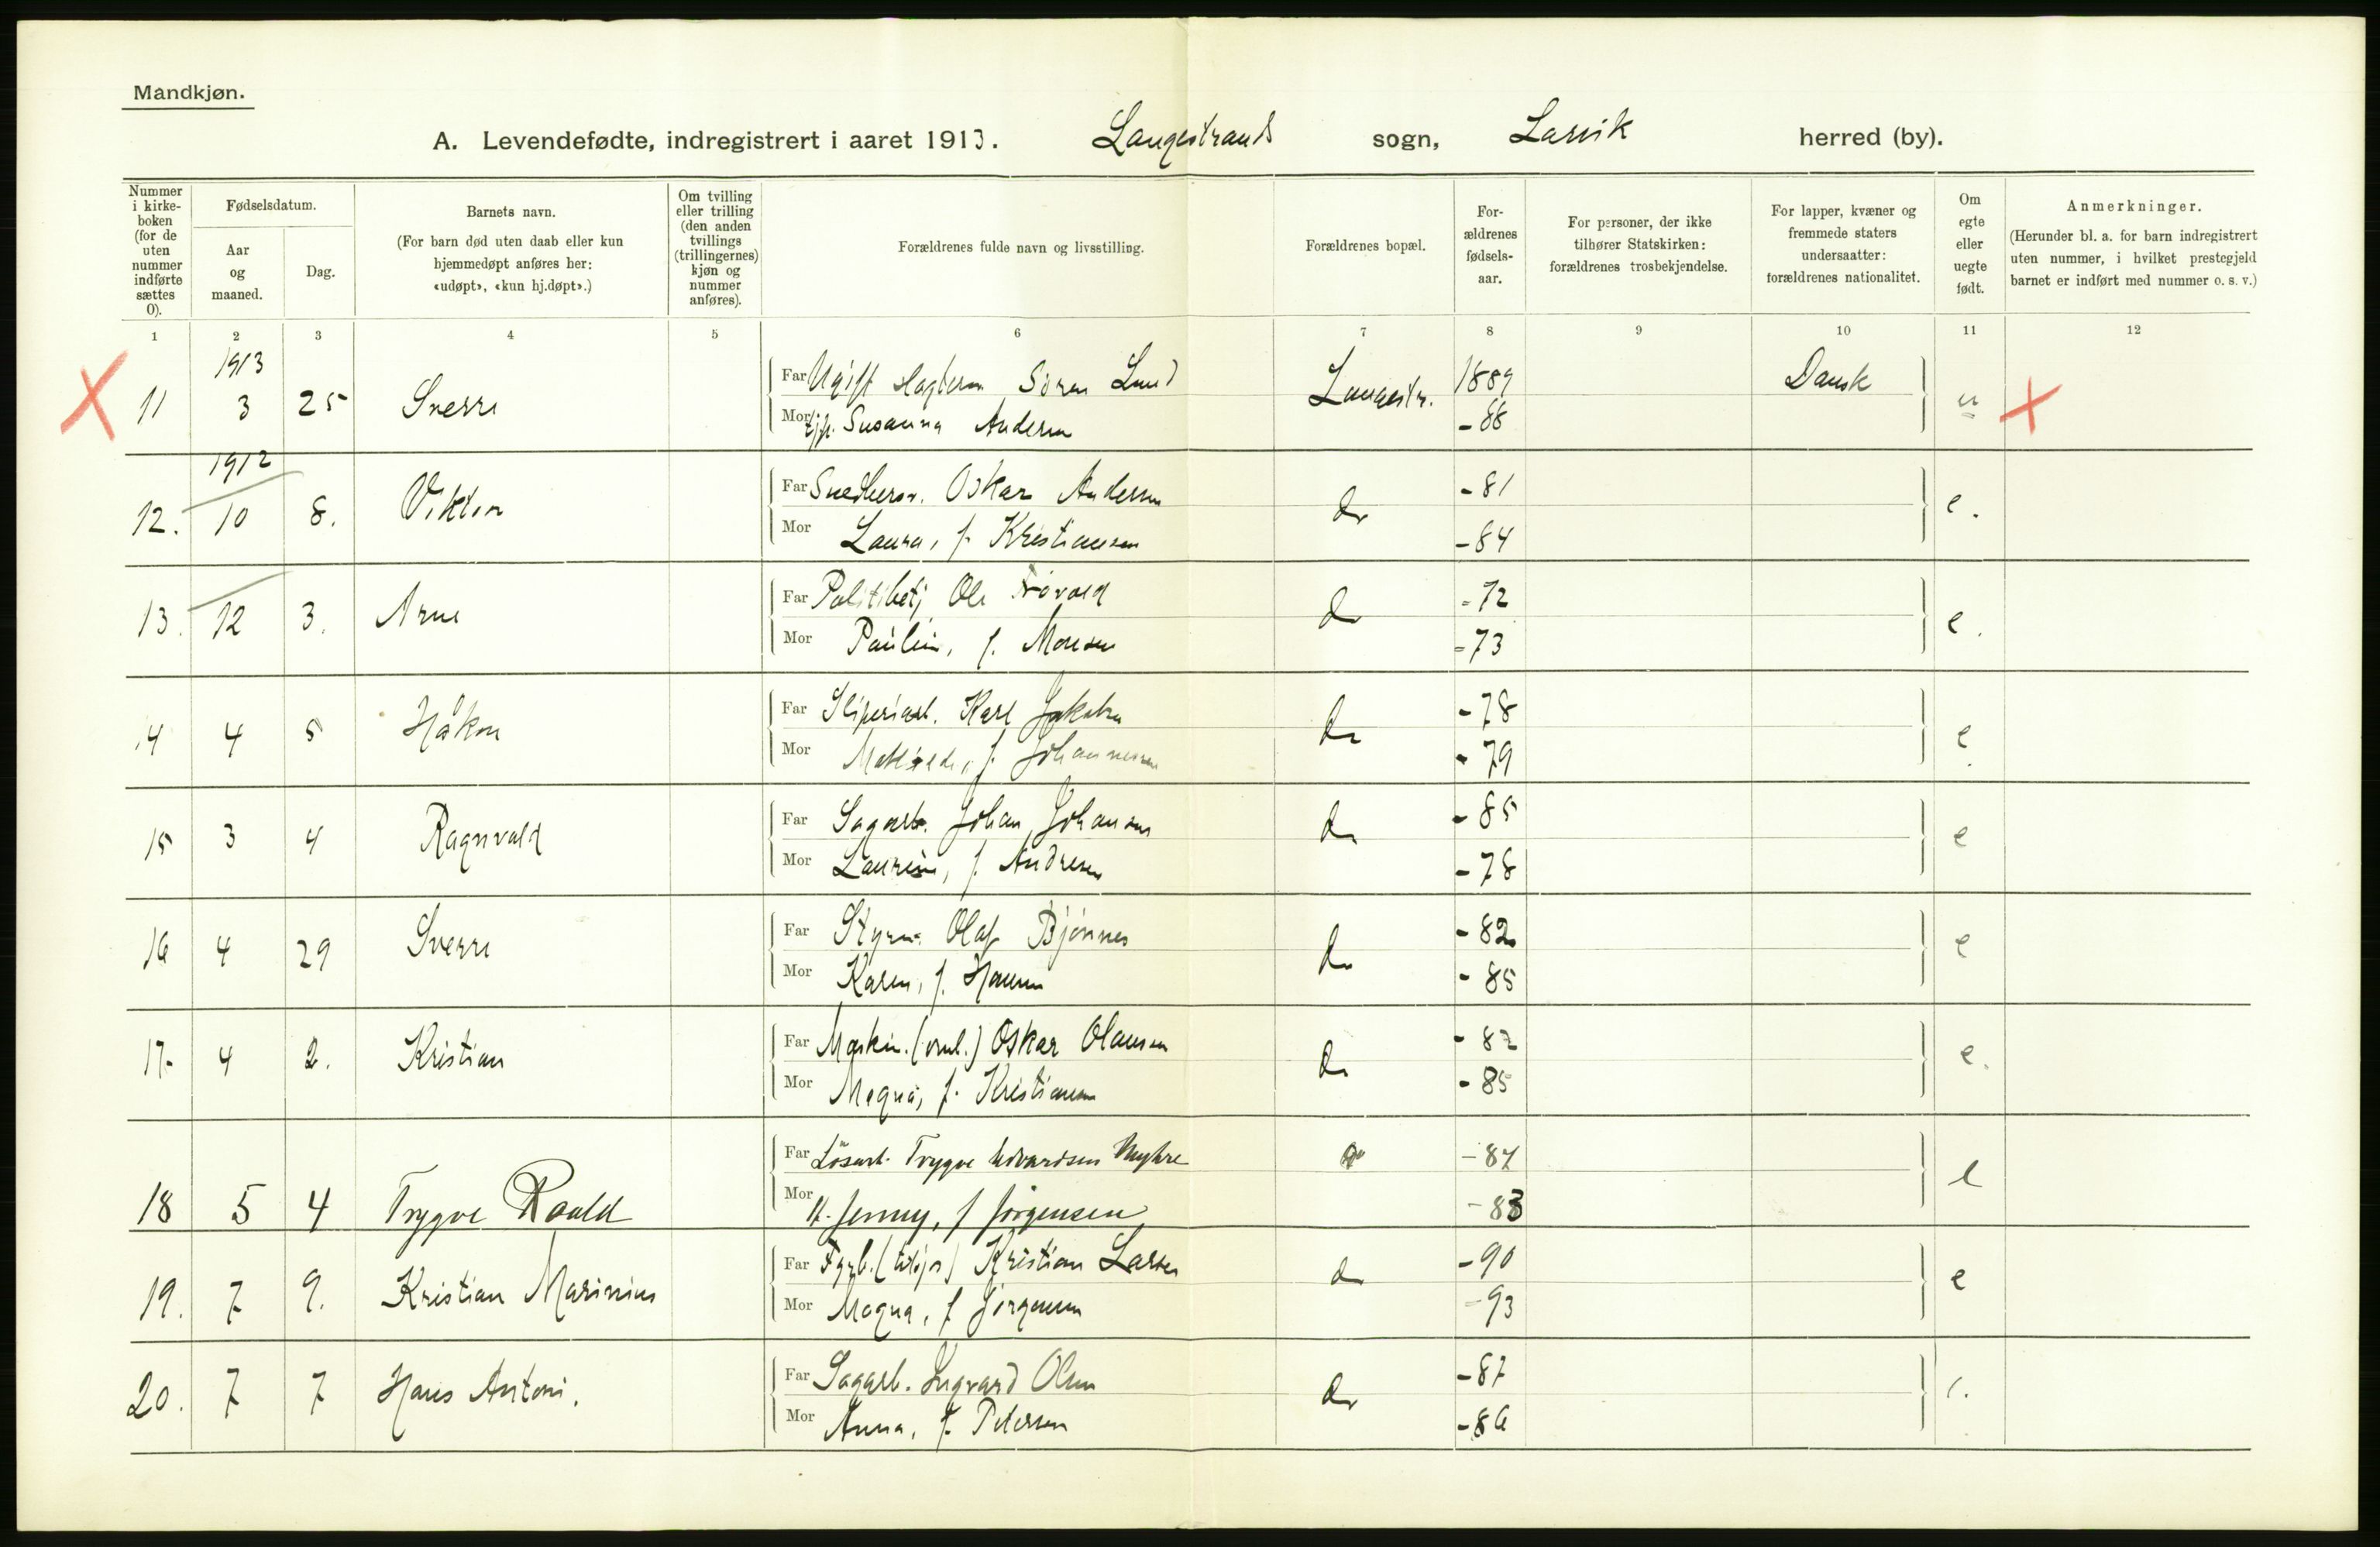 Mandkjøn.
A. Levendefødte, indregistrert i aaret 1913. Langestrands sogn, Larvik herred (by).
Nummer i kirke-boken (for de uten nummer indførte sættes 0).
Fødselsdatum.
Aar og maaned.
Dag.
Barnets navn.
(For barn død uten daab eller kun hjemmedøpt anføres her: «udøpt», «kun hj.døpt».)
Om tvilling eller trilling (den anden tvillings (trillingernes) kjøn og nummer anføres).
Forældrenes fulde navn og livsstilling.
Forældrenes bopæl.
For-ældrenes fødsels-aar.
For personer, der ikke tilhører Statskirken: forældrenes trosbekjendelse.
For lapper, kvæner og fremmede staters undersaatter: forældrenes nationalitet.
Om egte eller uegte født.
Anmerkninger.
(Herunder bl. a. for barn indregistrert uten nummer, i hvilket prestegjeld barnet er indført med nummer o. s. v.)
1 2 3 4 5 6 7 8 9 10 11 12
1913
11 3 25 Sverre Far Ugift Søren Lund Langestr. 1889 Dansk u
Mor Susanna Andersen - 88
1912
12. 10 8. Viktor Far Oskar Andersen do - 81 e.
Mor Laura, f. Kristiansen - 84
13. 12 3. Arne Far Politibetj Ole do - 72 e.
Mor Pauline, f. Monsen - 73
14 4 5 Håkon Far Sliperiarb. Karl Jakobsen do - 78 e.
Mor Mathilde, f. Johannesen - 79
15 3 4 Ragnvald Far Sagarb. Johan Johansen do - 85 e
Mor Laurine, f. Andresen - 78
16 4 29 Sverre Far Styrm. Olaf Bjønnes do - 82 e
Mor Karen, f. Hansen - 85
17. 4 2. Kristian Far Maskin. Oskar Olausen do - 82 e.
Mor Magna, f. Kristiansen - 85
18 5 4 Trygve Roald Far Løsarb. Trygve Edvardsen Myhre do - 87 e
Mor H. Jenny, f Jørgensen - 83
19. 7 9. Kristian Marinius Far Fyrb. Kristian Larsen do - 90 e
Mor Magna, f Jørgensen - 93
20. 7 7 Hans Antoni. Far Sagarb. Ingvard Olsen do - 87 e.
Mor Anna, f. Petersen - 86